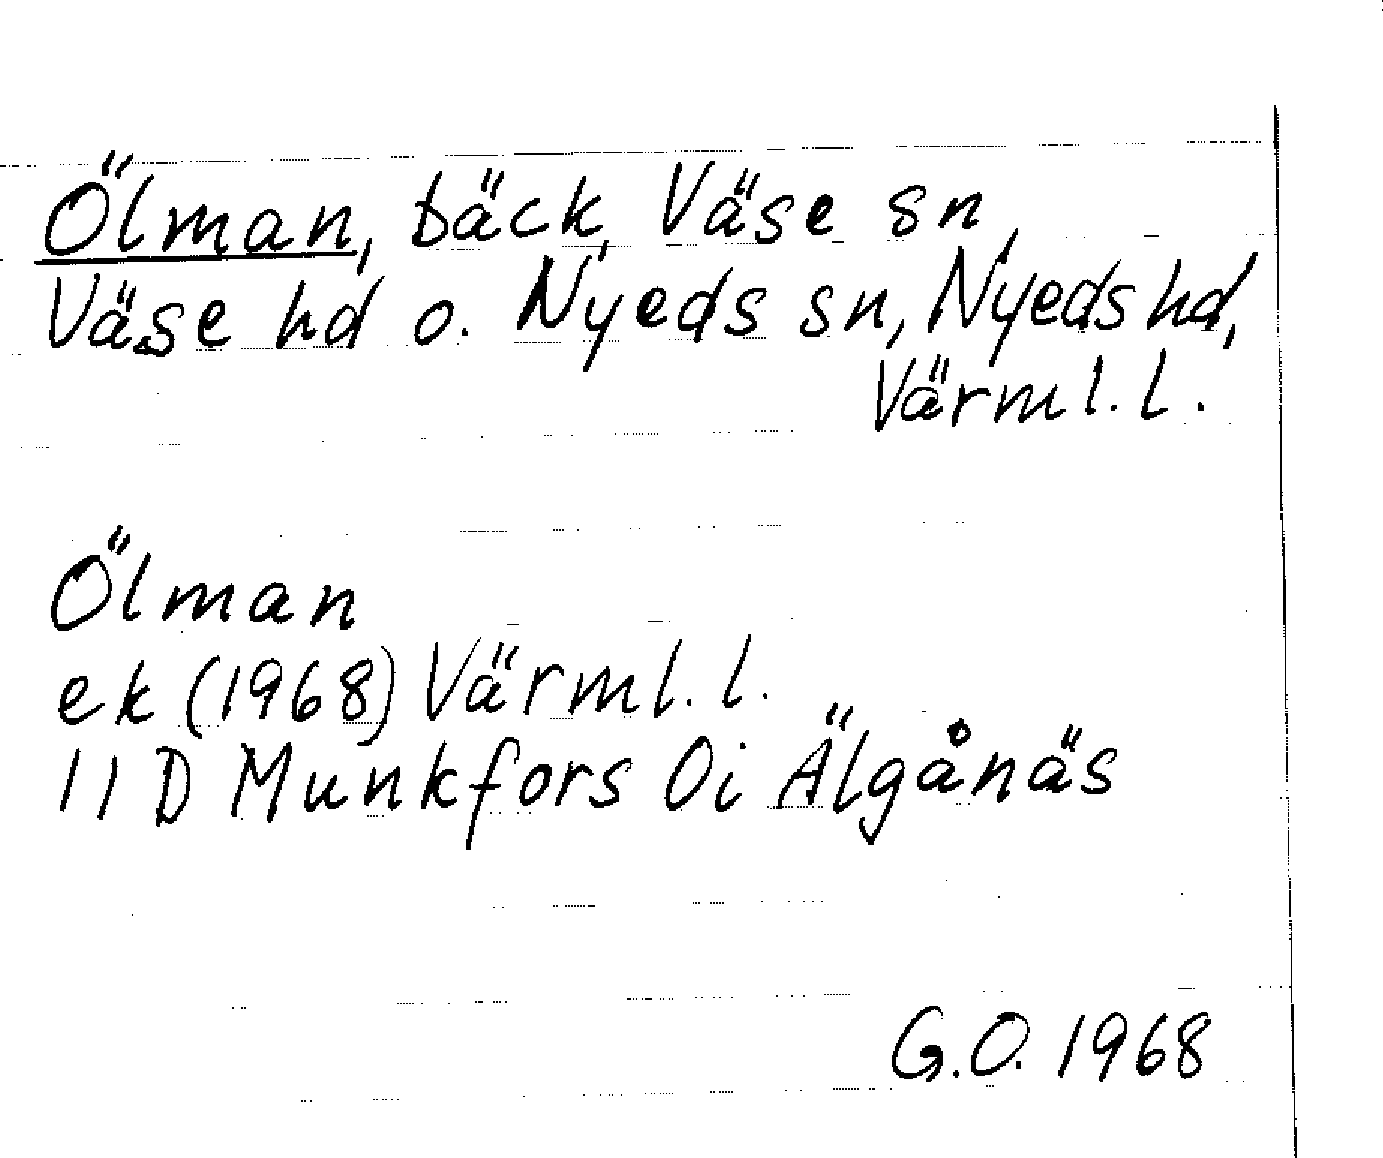 Ölman, bäck, Väse sn,
Väse hd o. Nyeds sn, Nyeds hd,
Värml. l.
Ölman
ek (1968) Värml. l.
11 D Munkfors 0i Älgånäs
G.O. 1968